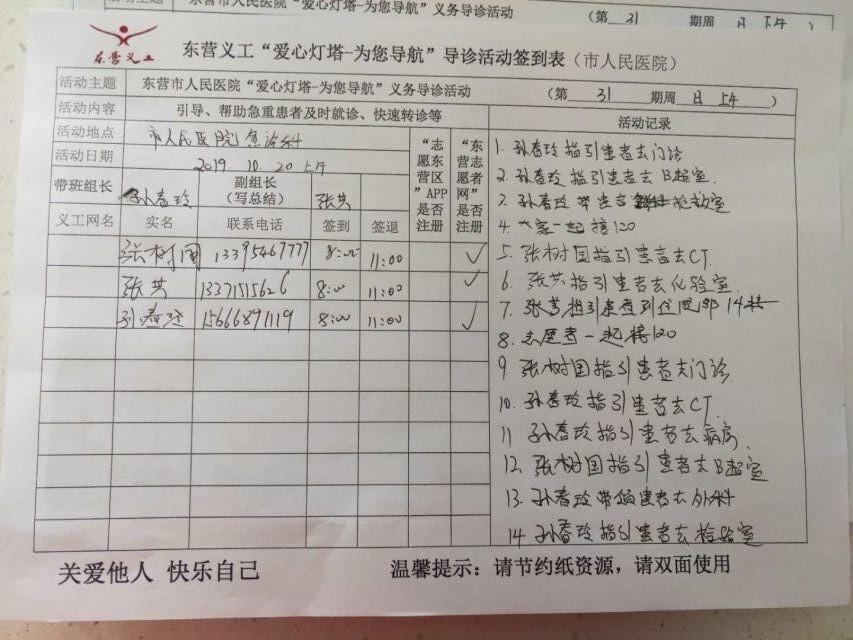 活动主题 东营市人民医院“爱心灯塔-为您导航”义务导诊活动 (第 31 期周 日 上午
东营义工
东营义工“爱心灯塔-为您导航”导诊活动签到表(市人民医院)
活动主题 东营市人民医院“爱心灯塔-为您导航”义务导诊活动 (第 31 期周 日 上午 )
活动内容 引导、帮助急重患者及时就诊、快速转诊等
活动地点 市人民医院急诊科
活动日期 2019.10.20上午
带班组长 孙春玲 副组长(写总结) 张芸
“志愿东营区”APP是否注册
“东营志愿者网”是否注册
义工网名 实名 联系电话 签到 签退
张树国 13395467777 8:00 11:00 ✓
张芸 13371515626 8:00 11:00 ✓
孙春玲 15666891119 8:00 11:00 ✓
活动记录
1. 孙春玲指引患者去门诊
2. 孙春玲指引患者去B超室
3. 孙春玲带患者去抢救室
4. 大家一起接120
5. 张树国指引患者去CT
6. 张芸指引患者去化验室
7. 张芸指引患者到住院部14楼
8. 志愿者一起接120
9. 张树国指引患者去门诊
10. 孙春玲指引患者去CT
11 孙春玲指引患者去病房
12. 张树国指引患者去B超室
13. 孙春玲带领患者去外科
14 孙春玲指引患者去检验室
关爱他人 快乐自己 温馨提示：请节约纸资源，请双面使用